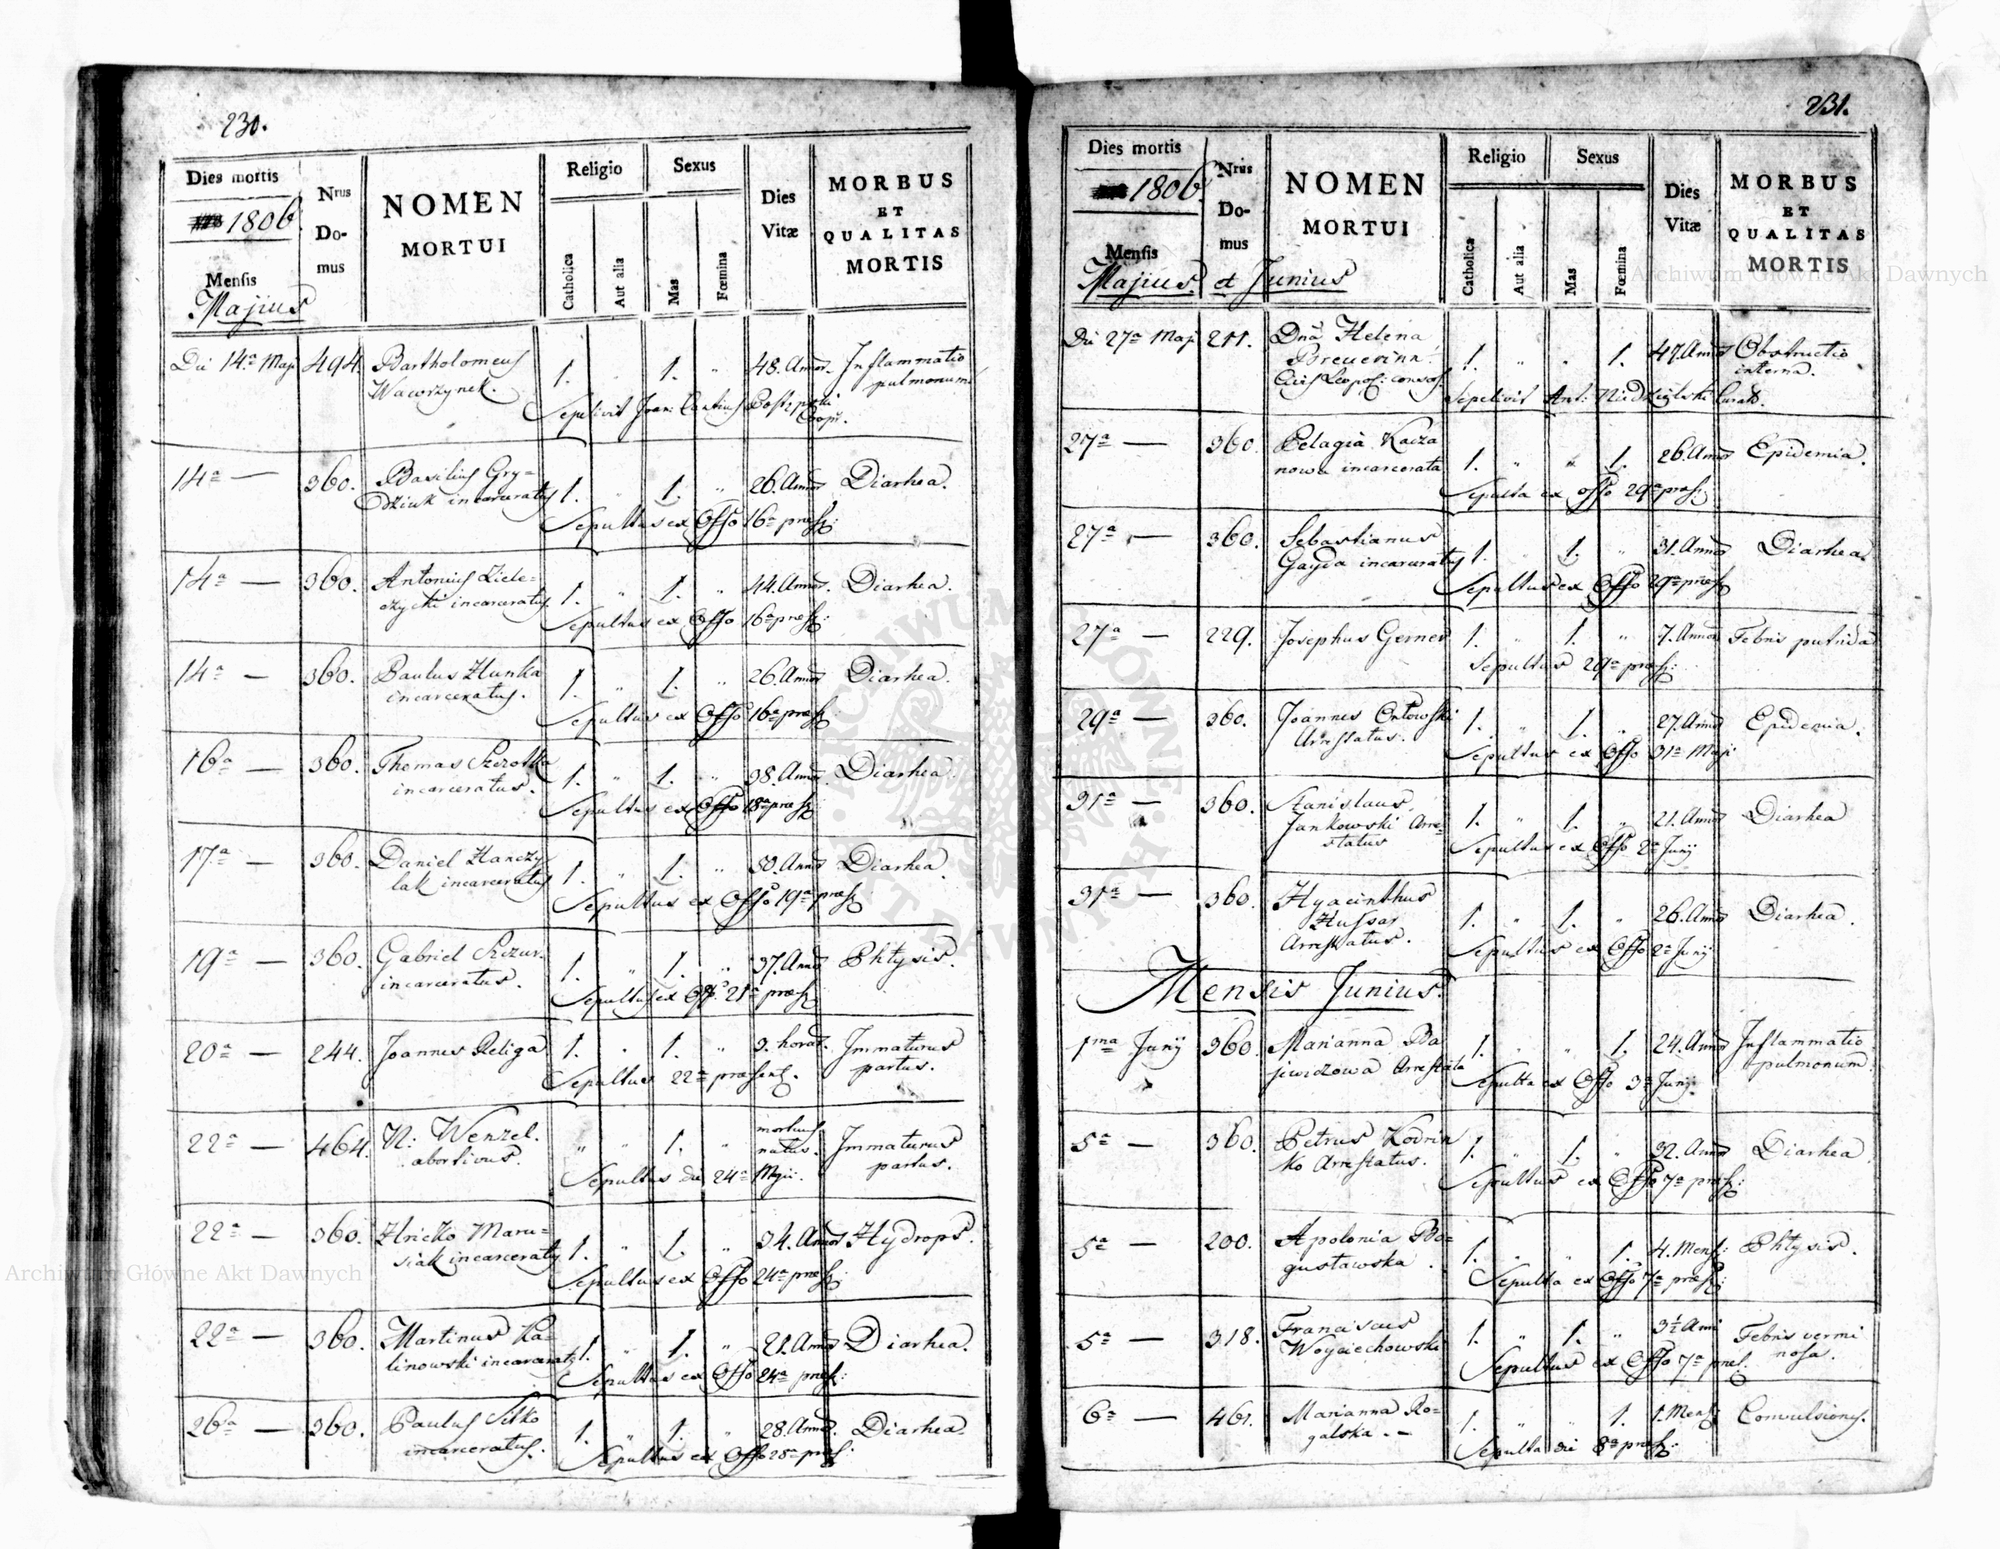 230.
Dies mortis
1806.
Mensis
Majius
Nrus
Do-
mus
NOMEN
MORTUI
Religio
Catholica
Aut alia
Sexus
Mas
Fœmina
Dies
Vitæ
MORBUS
ET
QUALITAS
MORTIS
Die 14ª Maji 494. Bartholomeus 1. " 1. " 48. Annor. Inflammatio
Wawrzynek. pulmonum
Sepelivit Joan: Cantius
Coop.
14ª — 360. Basilius Gry=
dziuk incarceratus 1. " 1. " 26. Annor Diarhea.
Sepultus ex Offo 16ª præs:
14ª — 360. Antonius Ziele=
zycki incarceratus 1. " 1. " 44. Annor. Diarhea.
Sepultus ex Offo 16ª præs:
14ª — 360. Paulus Hunka 1. " 1. " 26. Annor Diarhea.
incarceratus.
Sepultus ex Offo 16ª præs
16ª — 360. Thomas Szrotka 1. " 1. " 38. Annor Diarhea.
incarceratus.
Sepultus ex Offo 18ª præs
17ª — 360. Daniel Hanczy 1. " 1. " 50. Annor Diarhea.
lak incarceratus
Sepultus ex Offo 19ª præs
19ª — 360. Gabriel 1. " 1. " 37. Annor Phtysis.
incarceratus.
Sepultus ex Offo 21ª præs
20ª — 244. Joannes Religa 1. " 1. " 3. horar. Immaturus
partus.
Sepultus 22ª præsent.
22ª — 464. N: Wenzel. " " 1. " mortuus Immaturus
abortivus. natus. partus.
Sepultus die 24ª Maji.
22ª — 360. Hricko Maru=
siak incarceratus 1. " 1. " 34. Annor Hydrops.
Sepultus ex Offo 24ª præs:
22ª — 360. Martinus Ka=
linowski incarceratus 1. " 1. " 21. Annor Diarhea.
Sepultus ex Offo 24ª præs:
26ª — 360. Paulus Sitko 1. " 1. " 28. Annor. Diarhea.
incarceratus.
Sepultus ex Offo 28ª præs:
231.
Dies mortis
1806.
Mensis
Majius et Junius
Nrus
Do-
mus
NOMEN
MORTUI
Religio
Catholica
Aut alia
Sexus
Mas
Fœmina
Dies
Vitæ
MORBUS
ET
QUALITAS
MORTIS
Die 27ª Maji 211. Dna Helena
Breuerinna. 1. " " 1. 47. Annor Obstructio
Civis Leopol: consor. interna.
Sepelivit Ant: Niedzielski Curat.
27ª — 360. Pelagia Kacza
nowa incarcerata 1. " " 1. 26. Annor Epidemia.
Sepulta ex offo 29ª præs:
27ª — 360. Sebastianus
Gayda incarceratus 1. " 1. " 31. Annor Diarhea.
Sepultus ex Offo 29ª præs
27ª — 229. Josephus Gerner 1. " 1. " 7. Annor Febris putrida
Sepultus 29ª præs:
29ª — 360. Joannes Orłowski 1. " 1. " 27. Annor Epidemia.
Arrestatus.
Sepultus ex Offo 31ª Maji
31ª — 360. Stanislaus
Jankowski Arre= 1. " 1. " 21. Annor Diarhea
status
Sepultus ex Offo 2ª Junij
31ª — 360. Hyacinthus
Hussar 1. " 1. " 26. Annor Diarhea.
Arrestatus.
Sepultus ex Offo 2ª Junij
Mensis Junius.
1ma Junij 360. Marianna Ba
jewiczowa Arrestata 1. " " 1. 24. Annor Inflammatio
pulmonum
Sepulta ex Offo 3ª Junij.
5ª — 360. Petrus Kodrin
ko Arrestatus. 1. " 1. " 32. Annor Diarhea.
Sepultus ex Offo 7ª præs:
5ª — 200. Apolonia Bo=
gusławska. 1. " " 1. 4. Mens: Phtysis.
Sepulta ex Offo 7ª præs:
5ª — 318. Franciscus
Woyciechowski 1. " 1. " 3½ Anni Febris vermi
nosa.
Sepultus ex Offo 7ª præs.
6ª — 461. Marianna Ro=
galska. — 1. " " 1. 1. Mens Convulsiones.
Sepulta die 8ª præs:
Archiwum Główne Akt Dawnych
Archiwum Główne Akt Dawnych
ARCHIWUM GŁÓWNE
AKT DAWNYCH